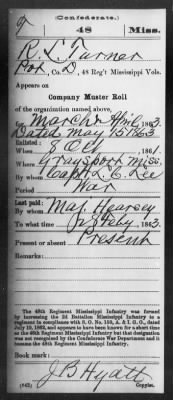 (Confederate.)
T 48 Miss.
R. L. Turner
Pvt, Co. D, 48 Reg't Mississippi Vols.
Appears on
Company Muster Roll
of the organization named above,
for March & Apl, 1863.
Dated May 15 1863
Enlisted:
When 8 Oct, 1861.
Where Graysport Miss.
By whom Capt L. C. Lee
Period War
Last paid:
By whom Maj Hearsey
To what time 28 Feby, 1863.
Present or absent Present
Remarks:
The 48th Regiment Mississippi Infantry was formed
by increasing the 2d Battalion Mississippi Infantry to a
regiment in compliance with S. O. No. 
July 19, 1862, and appears to have been known for a short time
as the 49th Regiment Mississippi Infantry but that designation
was not recognized by the Confederate War Department and it
became the 48th Regiment Mississippi Infantry.
Book mark:
J B Hyatt
(642) Copyist.